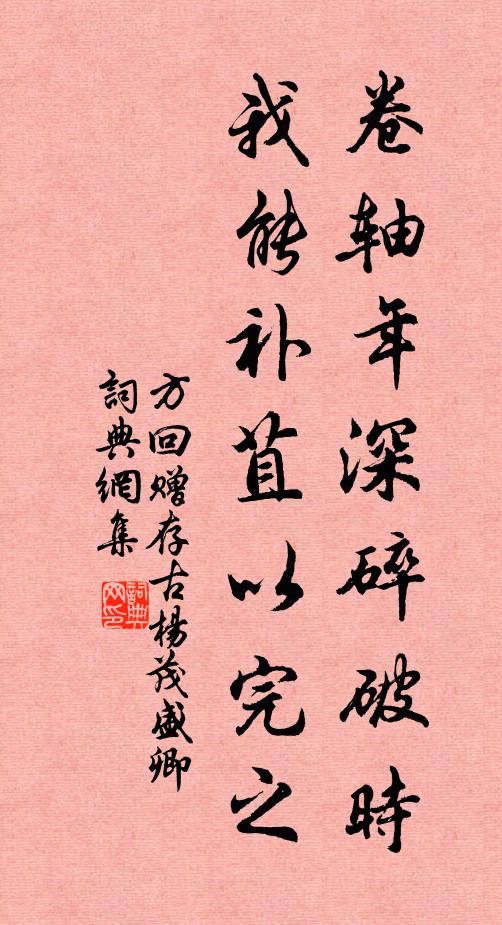 卷轴年深碎破時
我能补苴以完之
方回赠存古楊茂盛卿
詞典網集
詞典網印